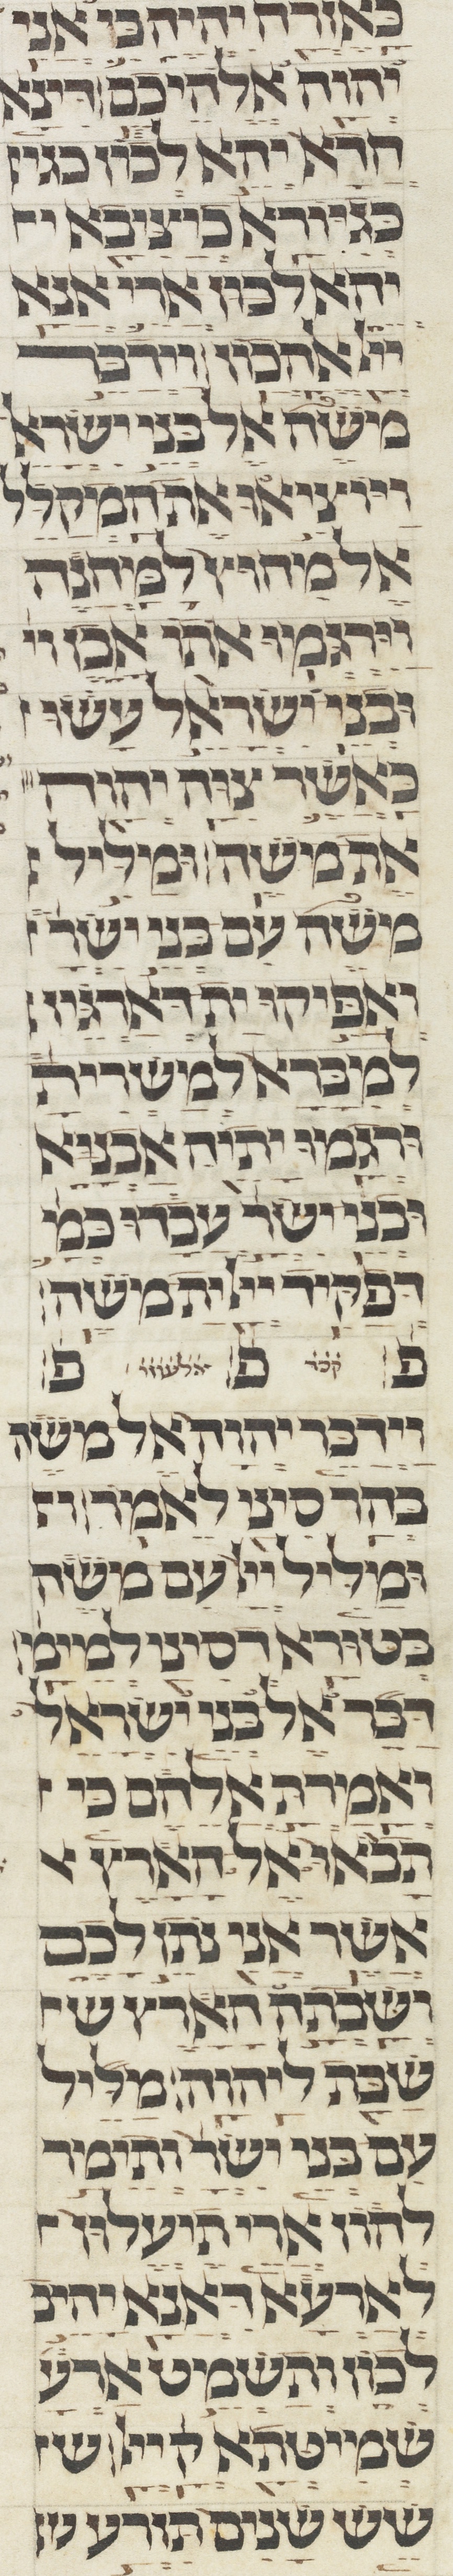 כאזרח יהיה כי אני
יהוה אלהיכם דינא
חדא יהא לכון כגין
כגיורא כיציבא י
יהא לכון ארי אנא
ייי אלהכון וידבר
משה אל בני ישראל
ויוציאו את המקלל
אל מחוץ למחנה
וירגמו אתו אבן וי
ובני ישראל עשו
כאשר צוה יהוה
את משה ומליל
משה עם בני ישר
ואפיקו ית דארגיז
למברא למשרית
ורגמו יתיה אבניא
ובני ישר עבדו כמ
דפקיד ייי ית משה
פ קכד פ אלעוזי פ
וידבר יהוה אל משה
בהר סיני לאמר
ומליל ייי עם משה
בטורא דסיני למימ
דבר אל בני ישראל
ואמרת אלהם כי
תבאו אל הארץ
אשר אני נתן לכם
ושבתה הארץ ש
שבת ליהוה מליל
עם בני ישר ותימר
להון ארי תיעלון
לארעא דאנא יהיב
לכון ותשמט ארע
שמיטתא ק ייי ש
שש שנים תזרע ש